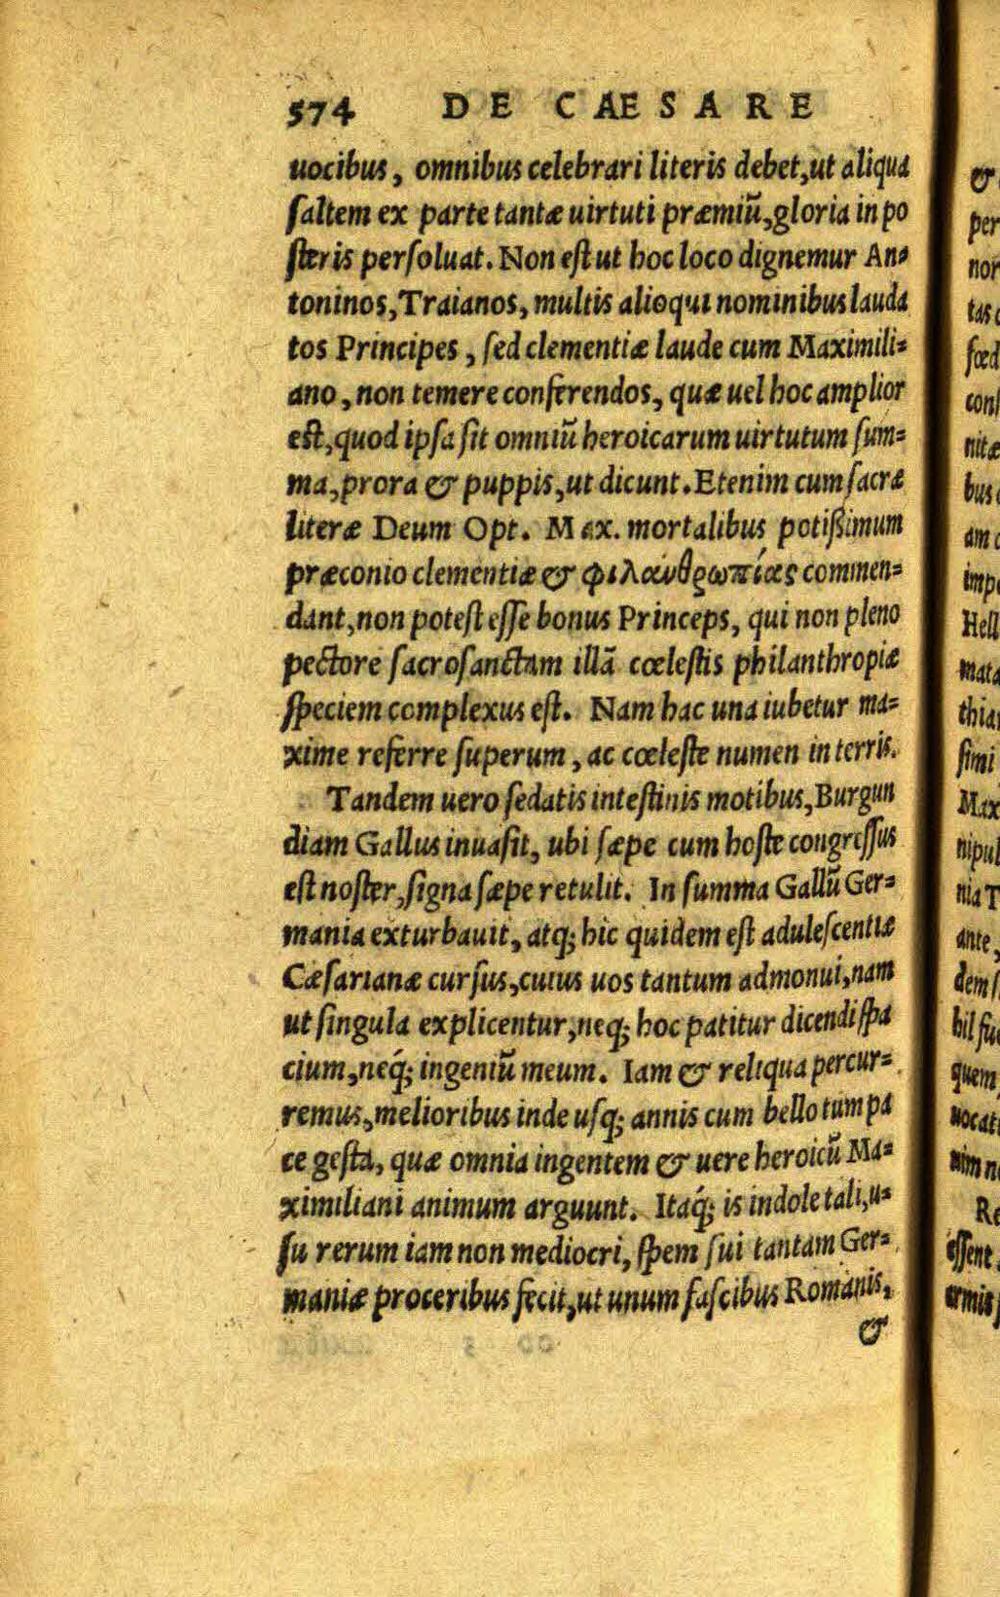 574 DE CAESARE
uocibus, omnibus celebrari literis debet, ut aliqua
ſaltem ex parte tantæ uirtuti præmiũ, gloria in po
ſteris perſoluat. Non eſt ut hoc loco dignemur An=
toninos, Traianos, multis alioqui nominibus lauda
tos Principes, ſed clementiæ laude cum Maximili=
ano, non temere conferendos, quæ uel hoc amplior
eſt, quod ipſa ſit omniũ heroicarum uirtutum ſum=
ma, prora & puppis, ut dicunt. Etenim cum ſacræ
literæ Deum Opt. Max. mortalibus potißimum
præconio clementiæ & φιλανθρωπίας commen=
dant, non poteſt eſſe bonus Princeps, qui non pleno
pectore ſacroſanctam illã cœleſtis philanthropiæ
ſpeciem complexus eſt. Nam hac una iubetur ma=
xime referre ſuperum, ac cœleſte numen in terris.
Tandem uero ſedatis inteſtinis motibus, Burgun
diam Gallus inuaſit, ubi ſæpe cum hoſte congreſſus
eſt noſter, ſigna ſæpe retulit. In ſumma Gallũ Ger=
mania exturbauit, atq; hic quidem eſt aduleſcentiæ
Cæſarianæ curſus, cuius uos tantum admonui, nam
ut ſingula explicentur, neq; hoc patitur dicendi ſpa
cium, neq́; ingeniũ meum. Iam & reliqua percur=
remus, melioribus inde uſq; annis cum bello tum pa
ce geſta, quæ omnia ingentem & uere heroicũ Ma=
ximiliani animum arguunt. Itaq́; is indole tali, u=
ſu rerum iam non mediocri, ſpem ſui tantam Ger=
maniæ proceribus fecit, ut unum faſcibus Romanis,
&